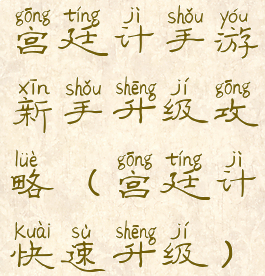 gōng tíng jì shǒu yóu
宫廷计手游
xīn shǒu shēng jí gōng
新手升级攻
lüè gōng tíng jì
略(宫廷计
kuài sù shēng jí
快速升级)